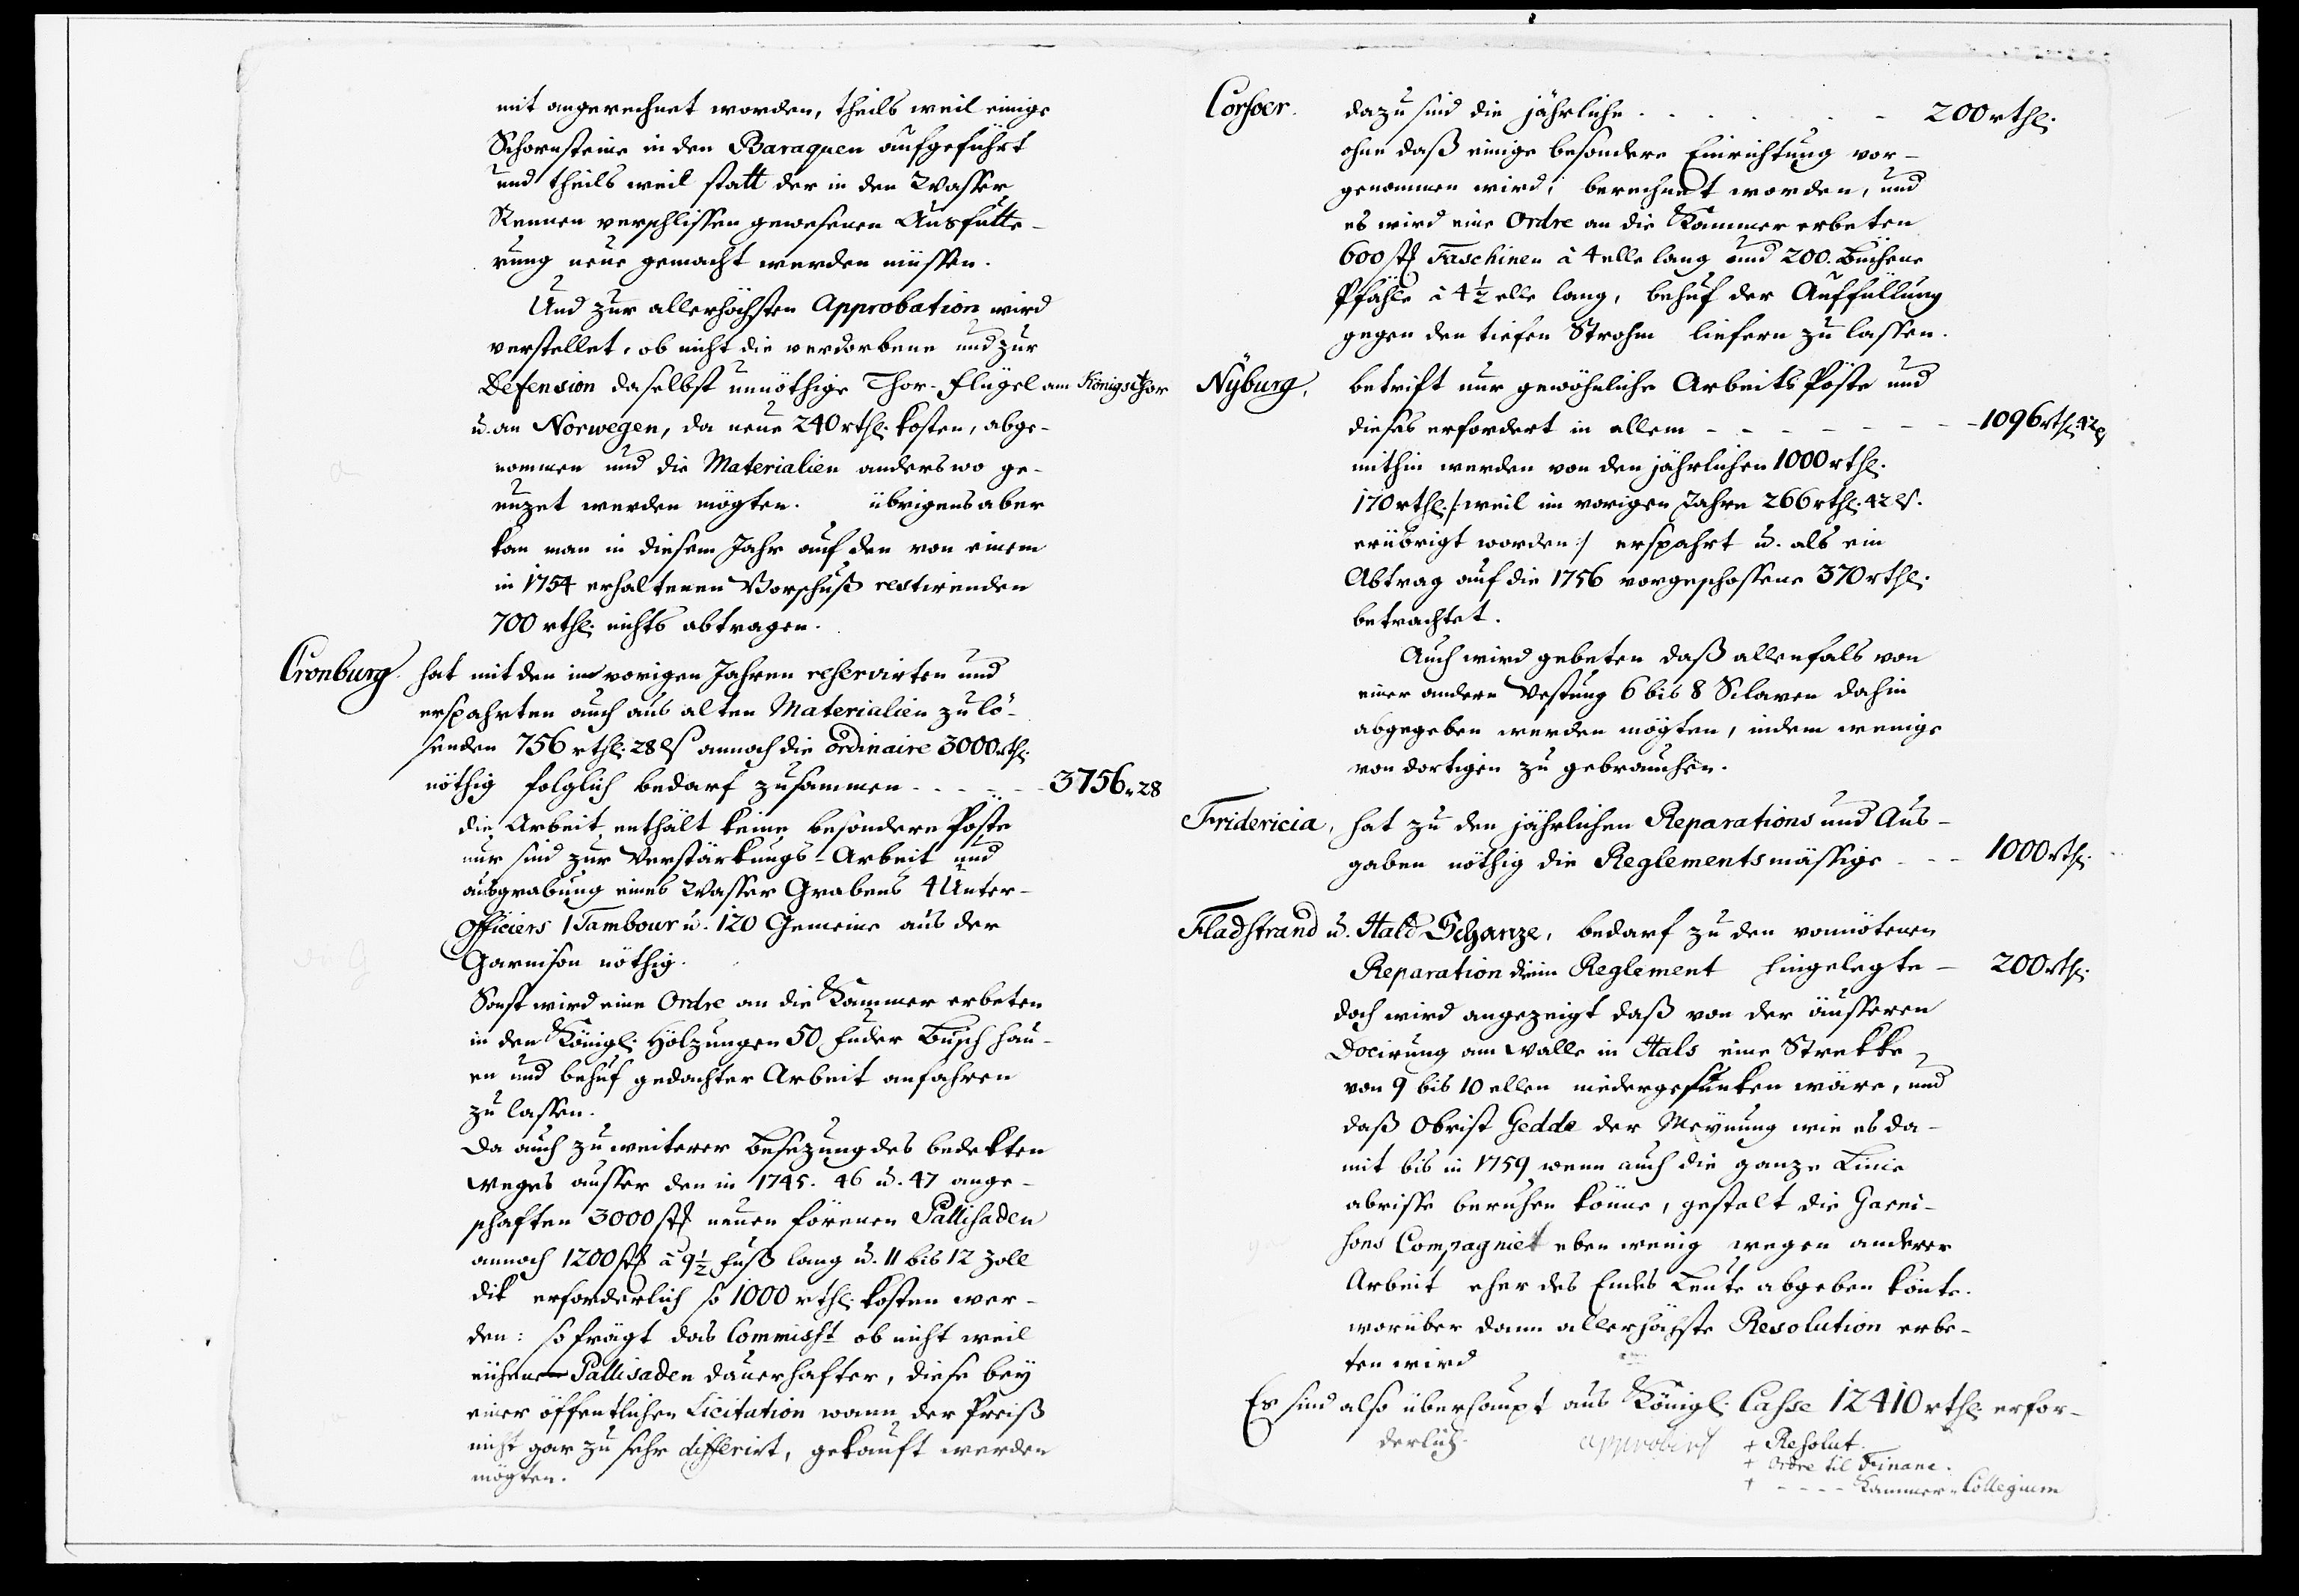 mit angerechnet worden, theils weil einige
Schornsteine in den Baraquen aufgeführt
und theils weil statt der in den Wasser
Rennen verschlissen gewesenen Ausfütte-
rung neue gemacht werden müssen.
Und zur allerhöchsten Approbation wird
verstellet, ob nicht die verdorbene und zur
Defension daselbst unnöthige Thor-Flügel am Königsthor
u. an Norwegen, da neue 240 rthl. kosten, abge-
nommen und die Materialien anderswo ge-
nuzet werden mögten. übrigens aber
kan man in diesem Jahr auf den von einem
in 1754 erhaltenen Vorschuß restirenden
700 rthl. nichts abtragen.
Cronburg. hat mit den im vorigen Jahren reservirten und
erspahrten auch aus alten Materialien zu lö-
senden 756 rthl. 28 ß annoch die ordinaire 3000 rthl.
nöthig folglich bedarf zusammen - - - - - 3756 „ 28
die Arbeit enthält keine besondere Pöste
nur sind zur Verstärkungs-Arbeit und
ausgrabung eines Wasser Grabens 4 Unter-
Officiers 1 Tambour u. 120 Gemeine aus der
Garnison nöthig.
Sonst wird eine Ordre an die Kammer erbeten
in den Königl. Hölzungen 50 Fuder Busch hau-
en und behuf gedachter Arbeit anfahren
zu lassen.
Da auch zu weiterer Besezung des bedekten
Weges ausser den in 1745. 46 u. 47 ange-
schaften 3000 st. neuen förenen Pallisaden
annoch 1200 st. à 9½ Fuß lang u. 11 bis 12 Zoll
dik erforderlich so 1000 rthl. kosten wer-
den: so frägt das Commisst ob nicht weil
eichene Pallisaden dauerhafter, diese bey
einer öffentlichen Licitation wann der Preiß
nicht gar zu sehr differirt, gekauft werden
mögten.
Corsoer. dazu sind die jährliche - - - - - - - 200 rthl.
ohne daß einige besondere Einrichtung vor-
genommen wird, berechnet worden, und
es wird eine Ordre an die Kammer erbeten
600 st. Faschinen à 4 elle lang und 200. Büchene
Pfähle à 4½ elle lang, behuf der Auffüllung
gegen den tiefen Strohm liefern zu lassen.
Nyburg, betrift nur gewöhnliche Arbeits Pöste und
dieses erfordert in allem - - - - - - - 1096 rthl. 42 ß
mithin werden von den jährlichen 1000 rthl.
170 rthl. /: weil im vorigen Jahre 266 rthl. 42 ß.
erübrigt worden :/ erspahrt u. als ein
Abtrag auf die 1756 vorgeschossene 370 rthl.
betrachtet.
Auch wird gebeten daß allenfals von
einer andern Vestung 6 bis 8 Sclaven dahin
abgegeben werden mögten, indem wenige
von dortigen zu gebrauchen.
Fridericia, hat zu den jährlichen Reparations und Aus-
gaben nöthig die Reglementsmässige - - - 1000 rthl.
Fladstrand u. Hals Schanze, bedarf zu den vonnötenen
Reparation die im Reglement hingelegte - 200 rthl.
doch wird angezeigt daß von der äusseren
Docirung am Walle in Hals eine Strekke
von 9 bis 10 ellen niedergesunken wäre, und
daß Obrist Gedde der Meynung wie es da-
mit bis in 1759, wenn auch die ganze Linie
abrisse beruhen könne, gestalt die Garni-
sons Compagniet eben wenig wegen anderer
Arbeit eher des Endes Leute abgeben könte.
worüber dann allerhöchste Resolution erbe-
ten wird
Es sind also überhaupt aus Königl. Casse 12410 rthl. erfor-
derlich. approbirt + Resolut.
+ Ordre til Financ.
+ - - - - Kammer-Collegium